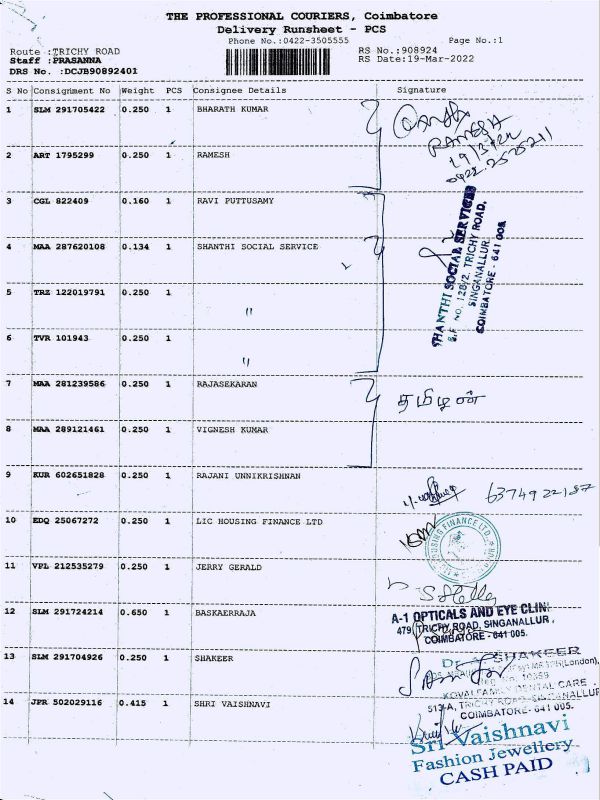 THE PROFESSIONAL COURIERS, Coimbatore
Delivery Runsheet - PCS
Phone No.:0422-3505555
Page No.:1
Route :TRICHY ROAD
RS No.:908924
Staff :PRASANNA
RS Date:19-Mar-2022
DRS No. :DCJB90892401
S No Consignment No Weight PCS Consignee Details Signature
1 SLM 291705422 0.250 1 BHARATH KUMAR
RAMESH
19/3/22
2 ART 1795299 0.250 1 RAMESH
3 CGL 822409 0.160 1 RAVI PUTTUSAMY
4 MAA 287620108 0.134 1 SHANTHI SOCIAL SERVICE
SHANTHI SOCIAL SERVICES
S.F. NO. 128/2, TRICHY ROAD,
SINGANALLUR,
COIMBATORE - 641 005.
5 TRZ 122019791 0.250 1 "
6 TVR 101943 0.250 1 "
7 MAA 281239586 0.250 1 RAJASEKARAN
தமிழன்
8 MAA 289121461 0.250 1 VIGNESH KUMAR
9 KUR 602651828 0.250 1 RAJANI UNNIKRISHNAN
6374922187
10 EDQ 25067272 0.250 1 LIC HOUSING FINANCE LTD
HOUSING FINANCE LTD.
11 VPL 212535279 0.250 1 JERRY GERALD
12 SLM 291724214 0.650 1 BASKAERRAJA
A-1 OPTICALS AND EYE CLINI
479, TRICHY ROAD, SINGANALLUR,
COIMBATORE - 641 005.
13 SLM 291704926 0.250 1 SHAKEER
SHAKEER
KOVAI FAMILY DENTAL CARE
513-A, TRICHY ROAD, SINGANALLUR
COIMBATORE- 641 005.
14 JPR 502029116 0.415 1 SHRI VAISHNAVI
Sri Vaishnavi
Fashion Jewellery
CASH PAID